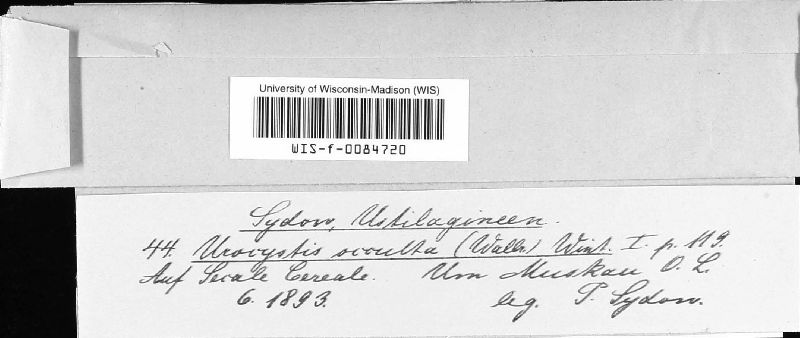 University of Wisconsin-Madison (WIS)
WIS-f-0084720
Sydow, Ustilagineen.
44. Urocystis occulta (Wallr.) Wint. I. p. 119.
Auf Secale Cereale. Um Muskau O. L.
6. 1893. leg. P. Sydow.